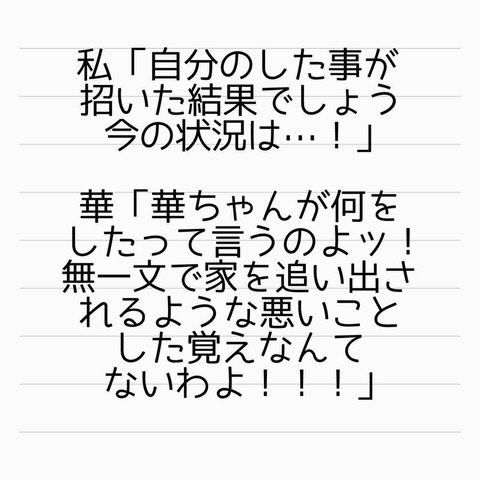 私「自分のした事が
招いた結果でしょう
今の状況は…！」
華「華ちゃんが何を
したって言うのよッ！
無一文で家を追い出さ
れるような悪いこと
した覚えなんて
ないわよ！！！」